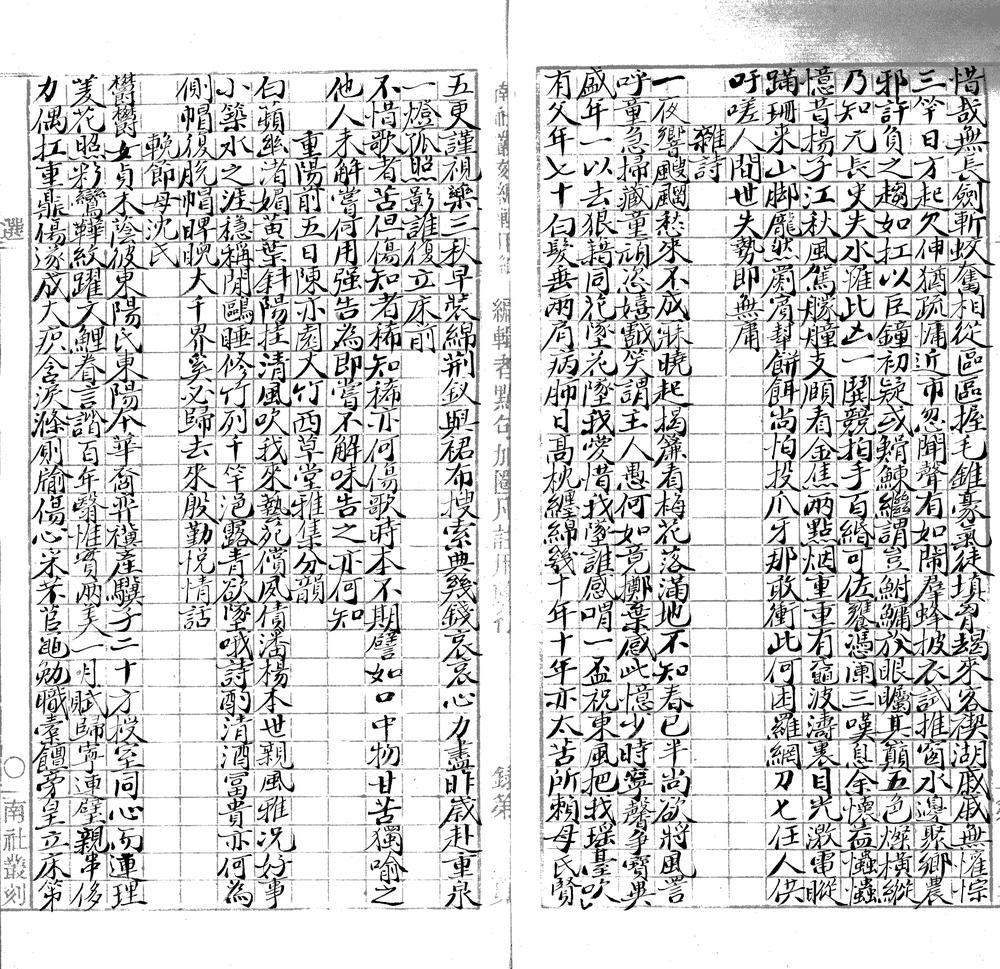 惜哉無長劍斬蛟奮相從區區握毛錐豪氣徒填胷朅來客禊湖戚戚無懽悰
三竿日方起欠伸猶疏慵近市忽聞聲有如鬧羣蜂披衣試推窗水邊聚鄉農
邪許負之趨如扛以巨鐘初疑或鱘鰊繼謂豈鮒鱅放眼矚其顛五色燦橫縱
乃知元長史失水罹此凶一鬨競拍手百緡可佐饔憑闌三嘆息余懷益忡忡
憶昔揚子江秋風駕艨艟支頤看金焦兩點烟重重有黿波濤裏目光激電瞛
蹣珊來山脚龐然罽賓幇餅餌尚怕投爪牙那敢衝此何困羅網刀匕任人供
吁嗟人間世失勢即無庸
雜詩
一夜響颼飀愁來不成寐曉起揭簾看梅花落滿地不知春已半尚欲將風詈
呼童急掃藏童頑恣嬉戲笑謂主人愚何如竟擲棄感此憶少時寧馨爭寶異
盛年一以去狼藉同花墜花墜我愛惜我墜誰感喟一盃祝東風把我瑤臺吹
有父年七十白髮垂兩肩病肺日高枕纏綿幾十年十年亦太苦所賴母氏賢
五更謹視藥三秋早裝綿荆釵與裙布搜索典幾錢哀哀心力盡昨歲赴重泉
一燈孤照影誰復立床前
不惜歌者苦但傷知者稀知稀亦何傷歌時本不期譬如口中物甘苦獨喻之
他人未解嘗何用强告為即嘗不解味告之亦何知
重陽前五日陳亦園大竹西草堂雅集分韻
白蘋絲渚媚黃葉斜陽挂清風吹我來藝苑償夙債潘楊本世親風雅况好事
小築水之涯穩稱閒鷗睡修竹列千竿浥露青欲墜哦詩酌清酒富貴亦何為
側帽復脱帽睥睨大千界寥必歸去來殷勤悦情話
輓節母沈氏
欝欝女貞木陰彼東陽氏東陽本華裔弈禩產驥子二十方授室同心而連理
菱花照彩鸞鞾紋躍文鯉眷言諧百年翳惟實兩美一月賦歸寧連璧親串侈
力偶扛重鼎傷遂成大疻含淚滌厠牏傷心采芣苢黽勉職橐饘旁皇立床第
選
南社叢刻
南社叢刻編輯
編輯者點句加圈
錄第